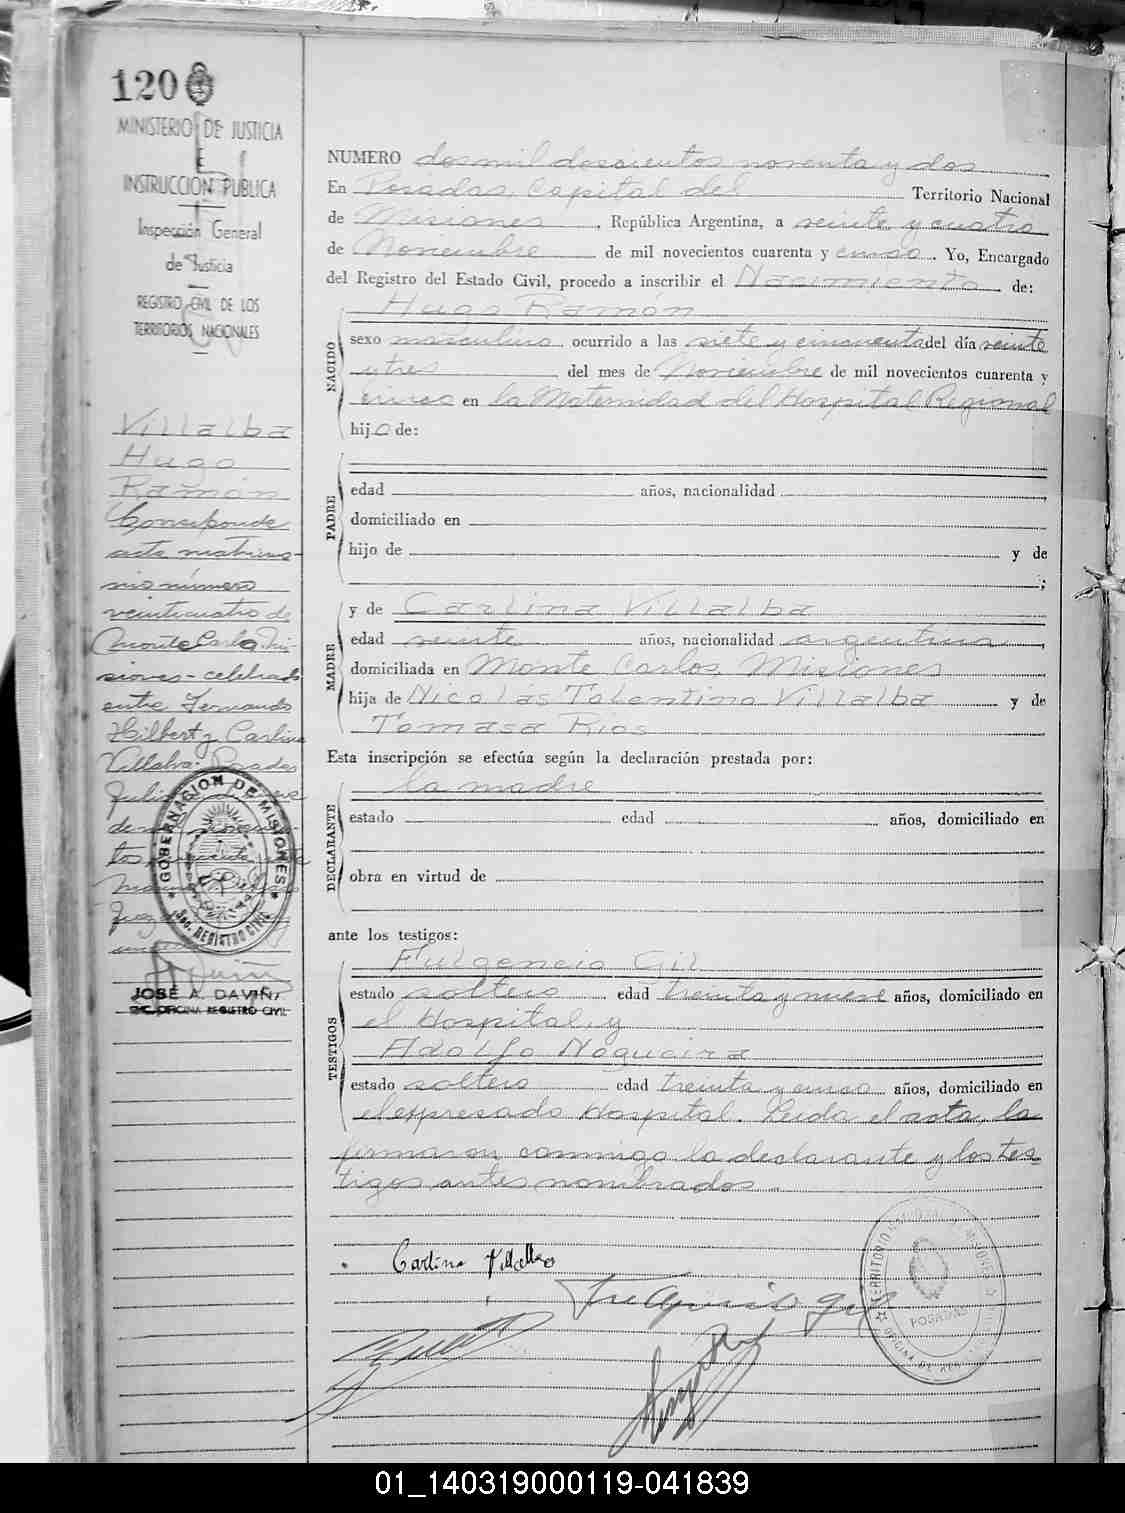 120
MINISTERIO DE JUSTICIA
E
INSTRUCCIÓN PÚBLICA
Inspección General
de Justicia
REGISTRO CIVIL DE LOS
TERRITORIOS NACIONALES
Villalba
Hugo
Ramón
Corresponde
acta matrimo-
nio número
veinticuatro de
Monte Carlo. Mi-
siones - celebrado
entre Fernando
Hilbert y Carlina
Villalva. Posadas
GOBERNACION DE MISIONES
REGISTRO CIVIL
JOSÉ A. DAVIÑA
OFICINA REGISTRO CIVIL
NUMERO dos mil doscientos noventa y dos
En Posadas, Capital del Territorio Nacional
de Misiones, República Argentina, a veinte y cuatro
de Noviembre de mil novecientos cuarenta y cinco. Yo, Encargado
del Registro del Estado Civil, procedo a inscribir el Nacimiento de:
Hugo Ramón
NACIDO
sexo masculino ocurrido a las siete y cincuenta del día veinte
y tres del mes de Noviembre de mil novecientos cuarenta y
cinco en la Maternidad del Hospital Regional
hijo de:
PADRE
edad años, nacionalidad
domiciliado en
hijo de y de
;
MADRE
y de Carlina Villalba
edad veinte años, nacionalidad argentina,
domiciliada en Monte Carlos, Misiones
hija de Nicolás Tolentino Villalba y de
Tomasa Rios
Esta inscripción se efectúa según la declaración prestada por:
la madre
DECLARANTE
estado edad años, domiciliado en
obra en virtud de
ante los testigos:
TESTIGOS
Fulgencio Gil
estado soltero edad treinta y nueve años, domiciliado en
el Hospital, y
Adolfo Nogueira
estado soltero edad treinta y cinco años, domiciliado en
el expresado Hospital. Leida el acta, la
firmaron conmigo la declarante y los tes-
tigos antes nombrados.
Carlina Villalba
POSADAS
01_140319000119-041839